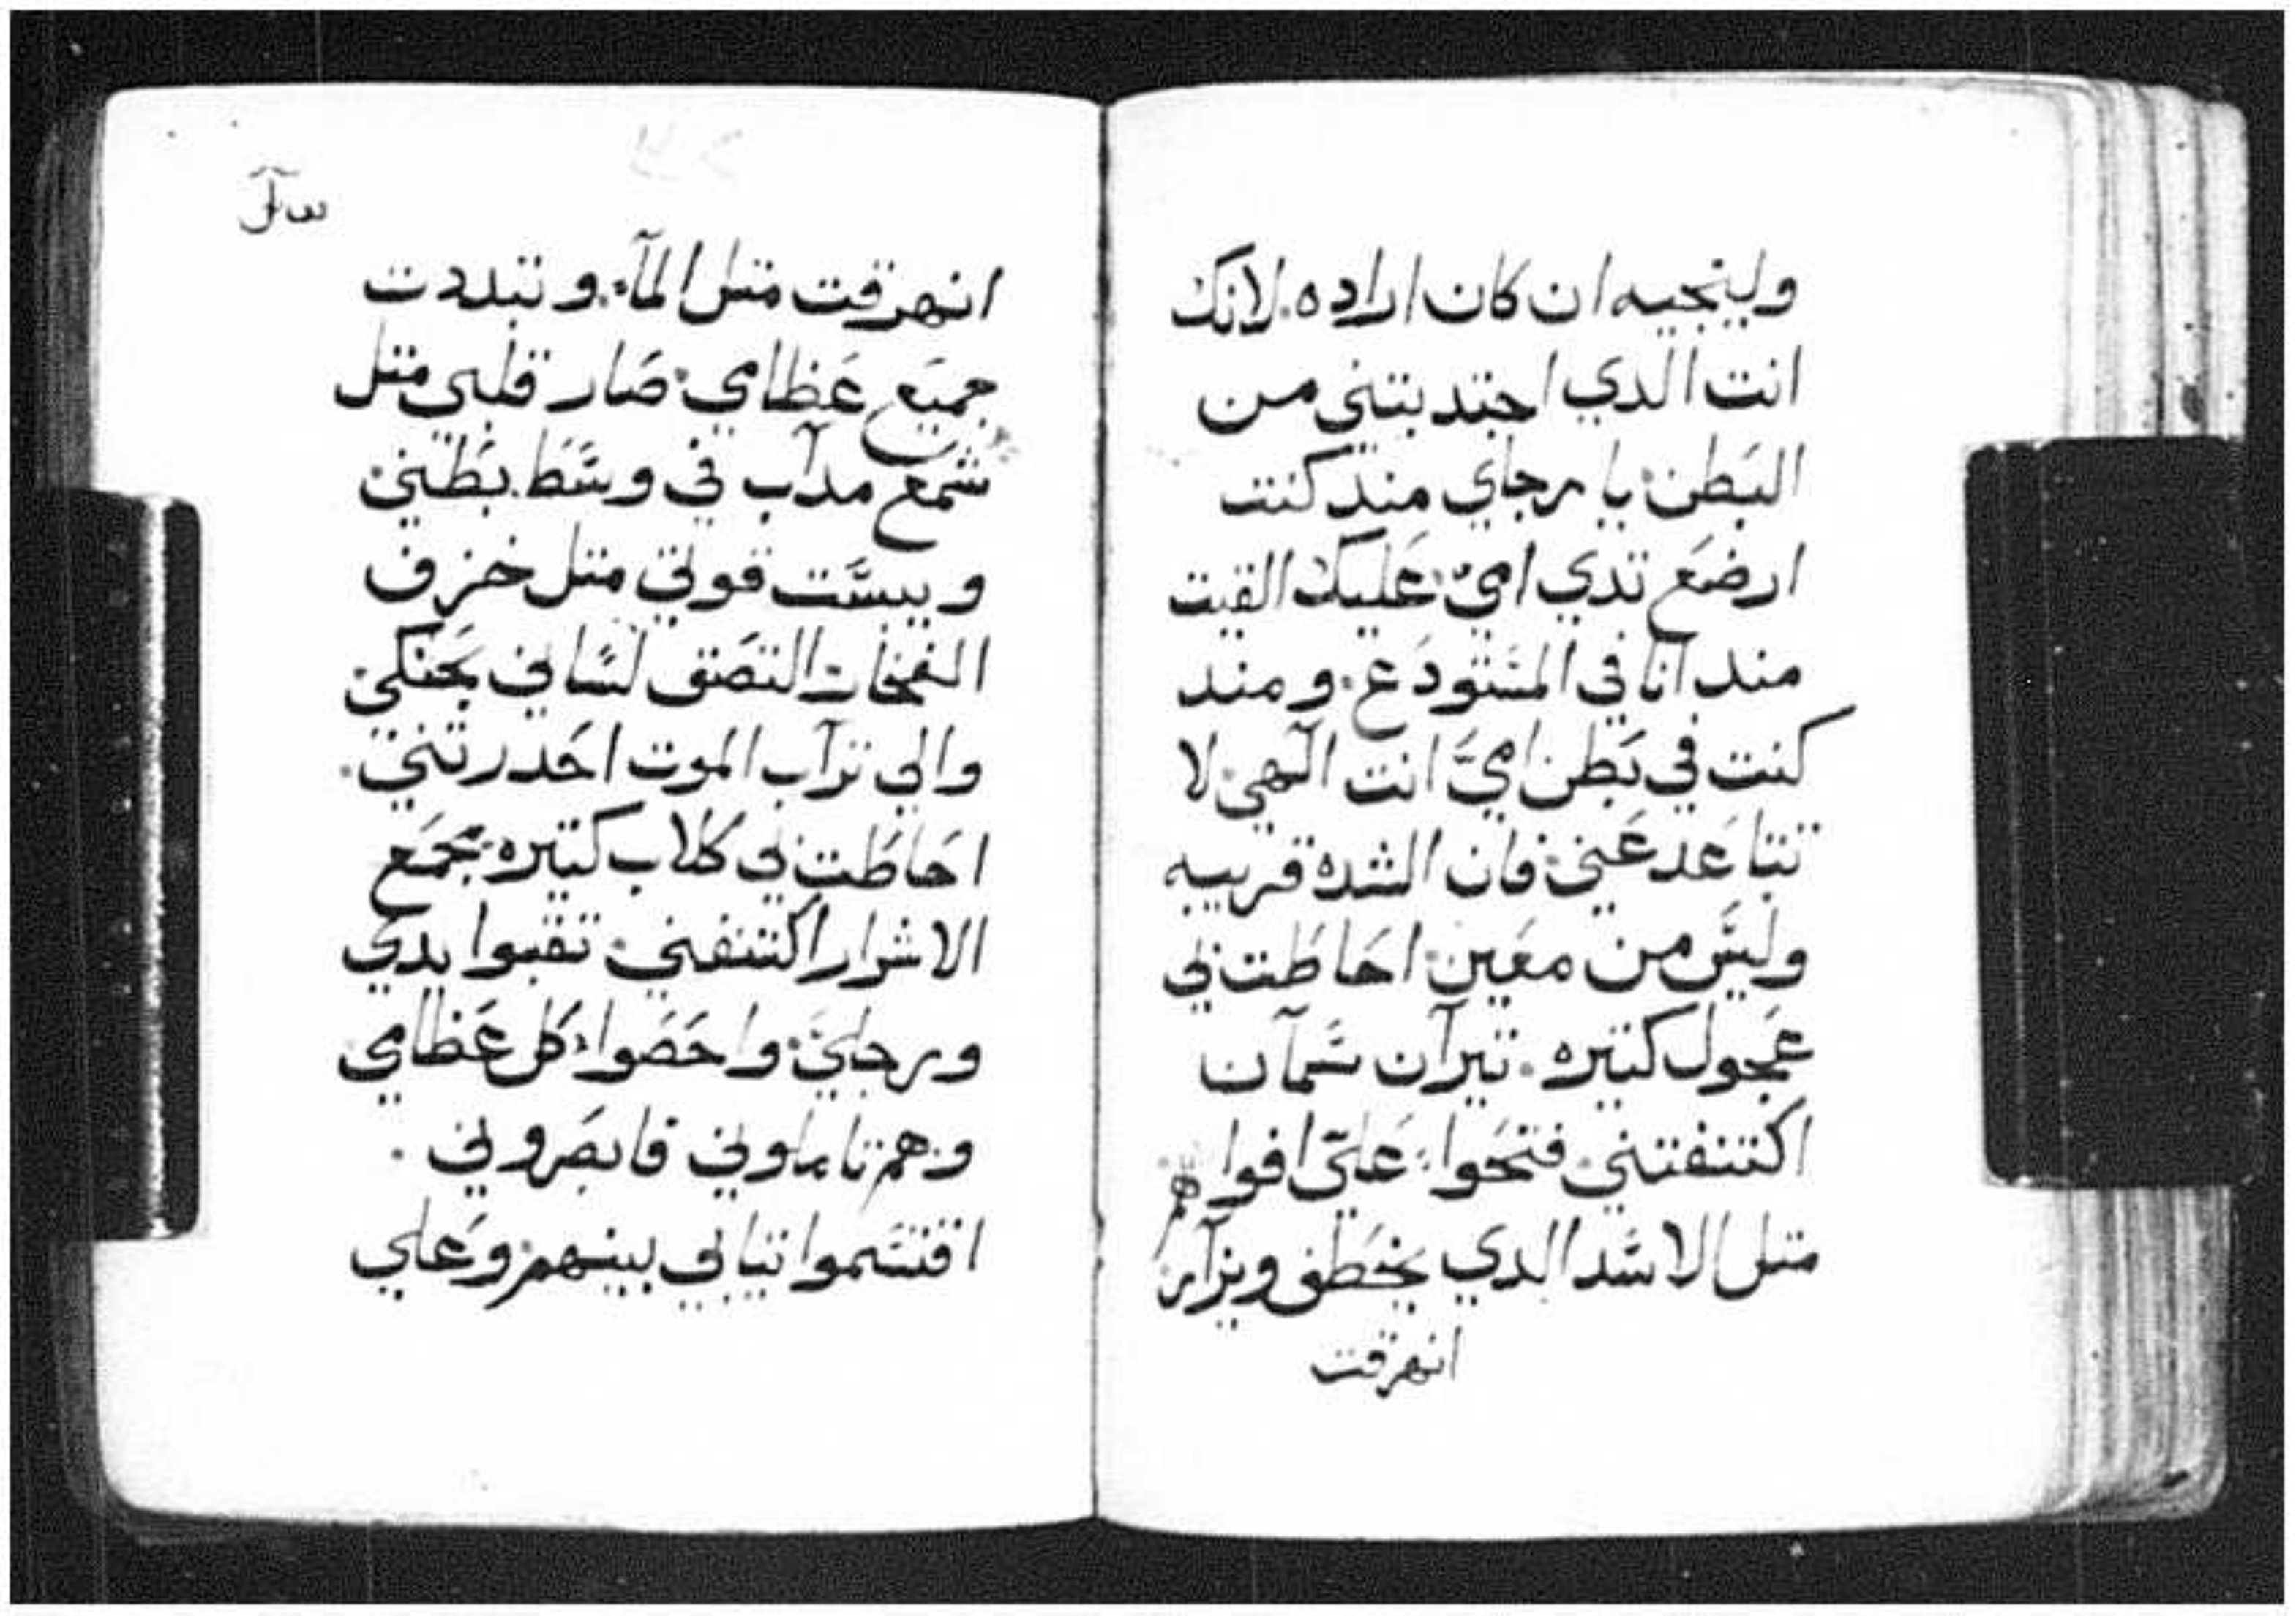 ولينجيه ان كان اراده. لانك
انت الدي اجتدبتني من
البَطن. يا رجاي مند كنت
ارضَع تدي امي. عَليك القيت
مند انا في المسَتودَع. ومند
كنت في بَطن اميَ انت الَهي. لا
تتباعَد عَني. فان الشده قريبه
وليسَ من معَين. احَاطَت بي
عَجول كتيره. تيرآن سَمآن
اكتنفتني. فتحَوا عَليّ افواههم
متل الاسَد الدي يخطَف ويزآر
انهرقت
انهرقت متل المآء. وتبددت
جميَع عَظامي. صَار قلبي متل
شمَع مدآب في وسَط بطَني
ويبسَت قوتي متل خزف
الفخار. التصَق لسَاني بحَنكي
والي ترآب الموت احَدرتني.
احَاطَت بي كلاب كتيره. مجمَع
الاشرار اكتنفني. تقبوا يدي
ورجليَ. واحَصَوا كل عَظامي
وهم تاملوني فابصَروني.
اقتسَموا تيابي بينهم. وعَلي